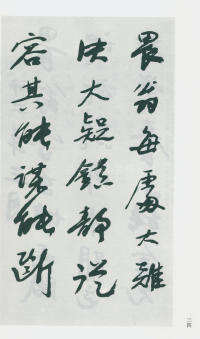 畏翁每處大難
決大疑鎮靜從
容其能謀能斷
二四